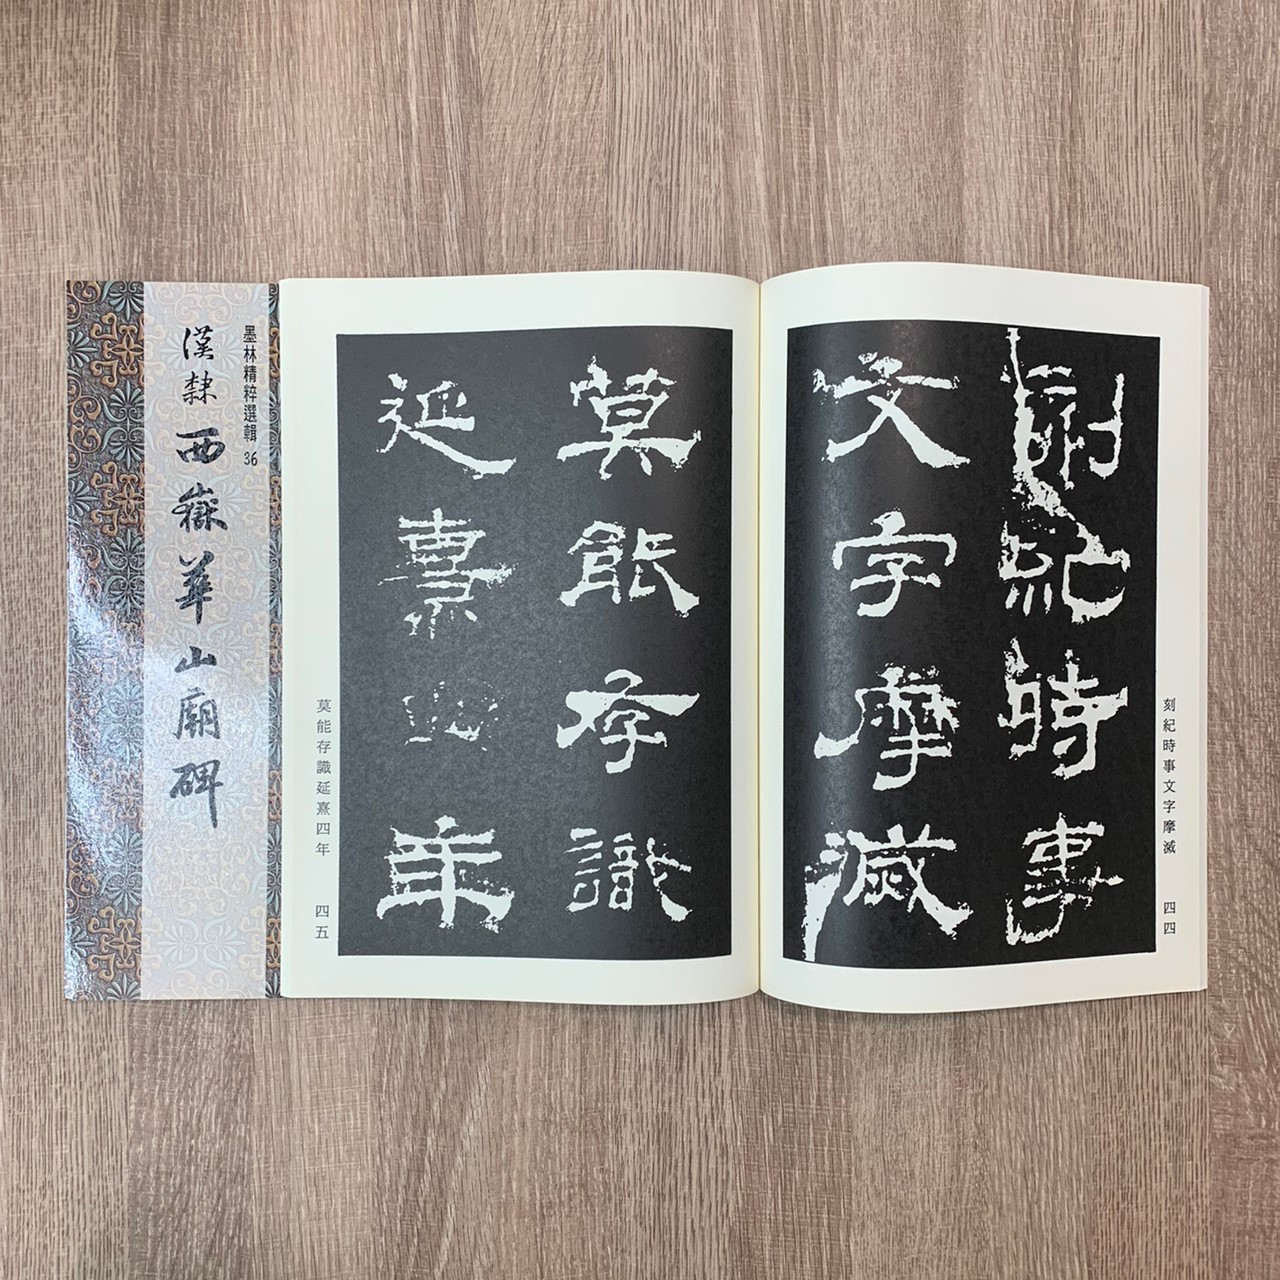 墨林精粹選輯 36
漢隸西嶽華山廟碑
刻紀時事文字摩滅
四四
刻紀時事
文字摩滅
莫能存識
延熹四年
莫能存識延熹四年
四五